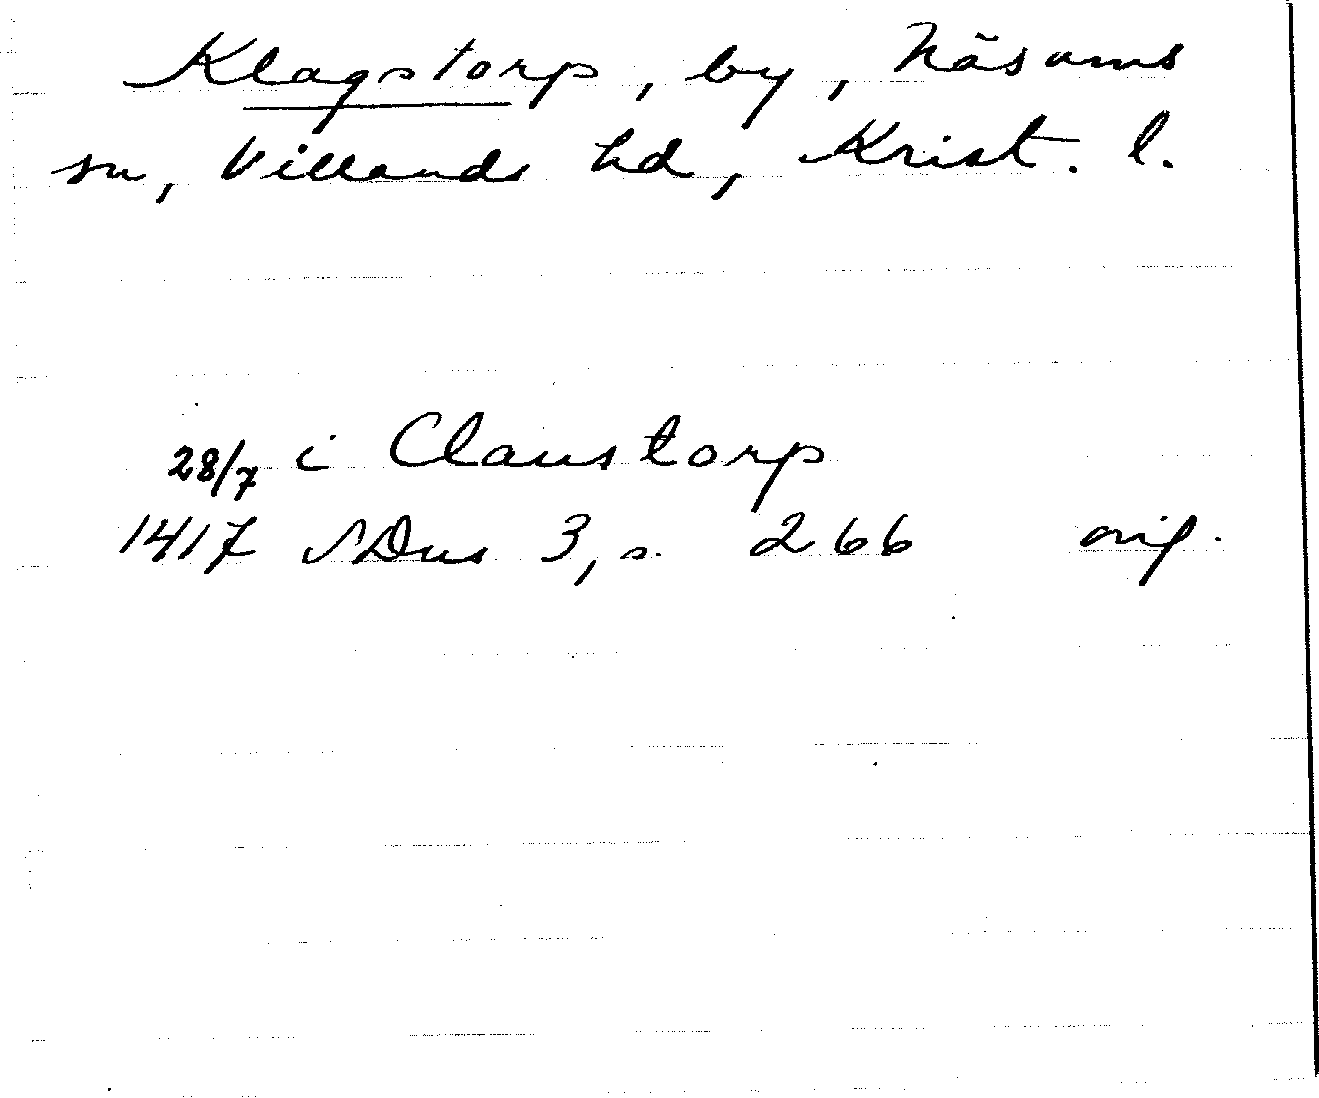 Klagstorp, by, Näsums
sn, Villands hd, Krist. l.
28/7 i Claustorp
1417 SDns 3, s. 266 orig.